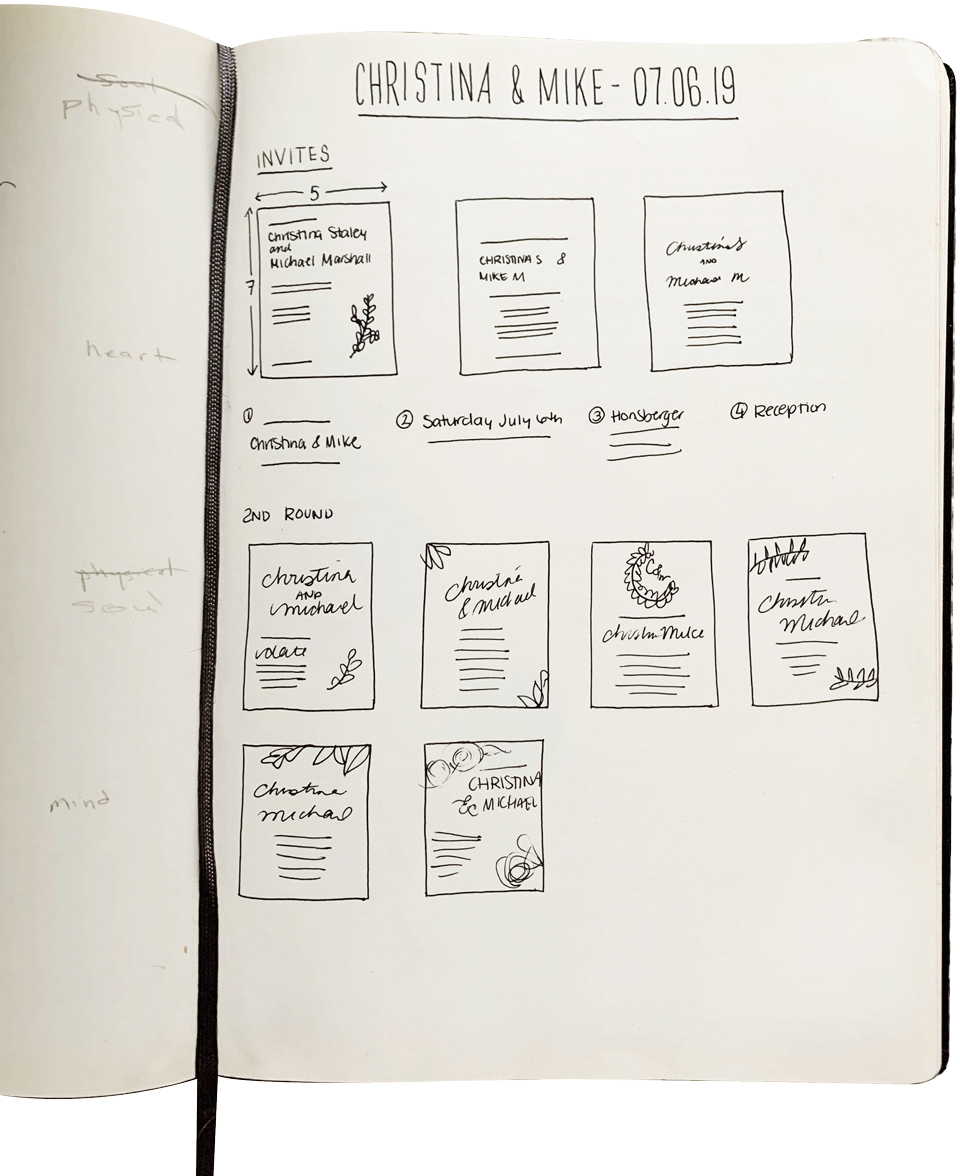 Soul
physical
heart
physical
soul
mind
CHRISTINA & MIKE - 07.06.19
INVITES
5
7
Christina Staley
and
Michael Marshall
CHRISTINA S &
MIKE M
Christina S
AND
Michael M
① 
Christina & Mike
② Saturday July 6th
③ Honsberger
④ Reception
2ND ROUND
Christina
AND
Michael
date
Christina
& Michael
C&M
Christin Mike
Christin
Michael
Christina
Michael
CHRISTINA
& MICHAEL